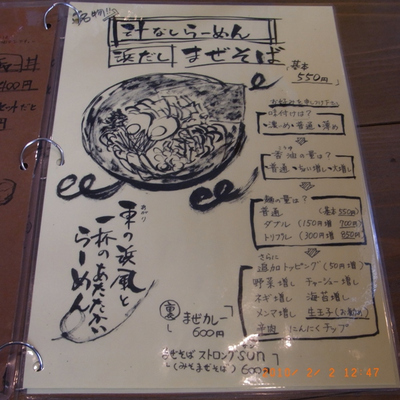 名物!!
汁なしらーめん
浜だし まぜそば
基本
550円
お好みを申し付け下さい
味付けは?
濃いめ・普通・薄め
香油の量は?
普通・ちい増し・大増し
麺の量は?
普通 (基本550円)
ダブル (150円増 700円)
トリプル (300円増 850円)
さらに
追加トッピング (50円増)
野菜増し チャーシュー増し
ネギ増し 海苔増し
メンマ増し 生玉子(お勧め)
にんにくチップ
東の浜風と
一杯のあたたかい
らーめん
裏 まぜカレー
600円
まぜそば ストロングsun
(みそまぜそば) 600円
400円
2010/ 2/ 2 12:47